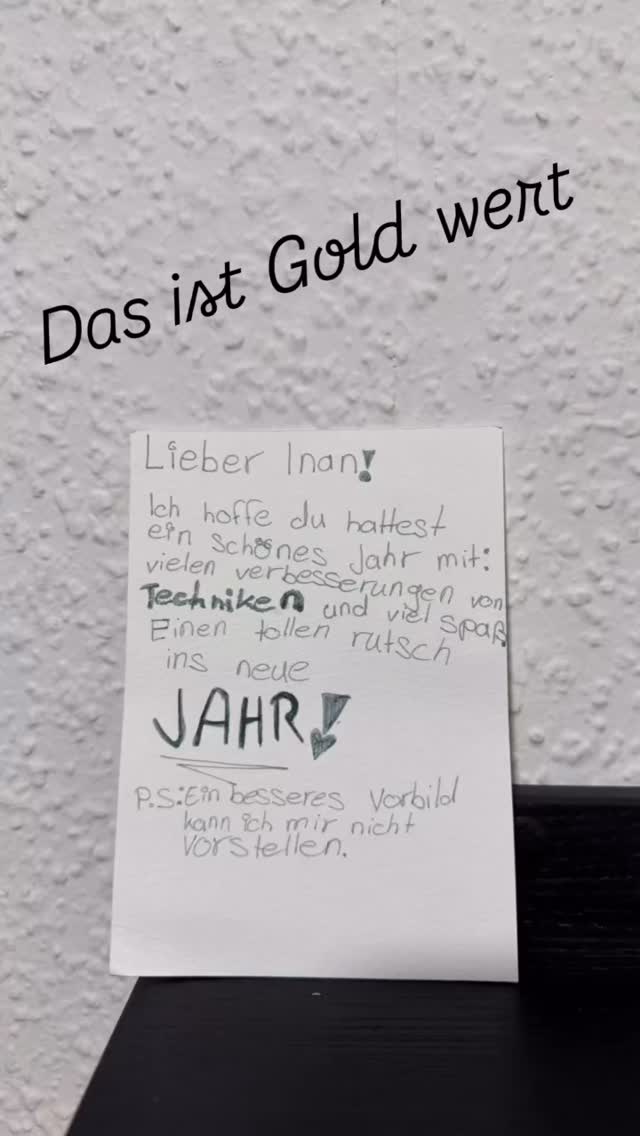 Das ist Gold wert
Lieber Inan!
Ich hoffe du hattest
ein schönes Jahr mit:
vielen verbesserungen von
Techniken und viel spaß
Einen tollen rutsch
ins neue
JAHR!
P.S.:Ein besseres Vorbild
kann ich mir nicht
vorstellen.